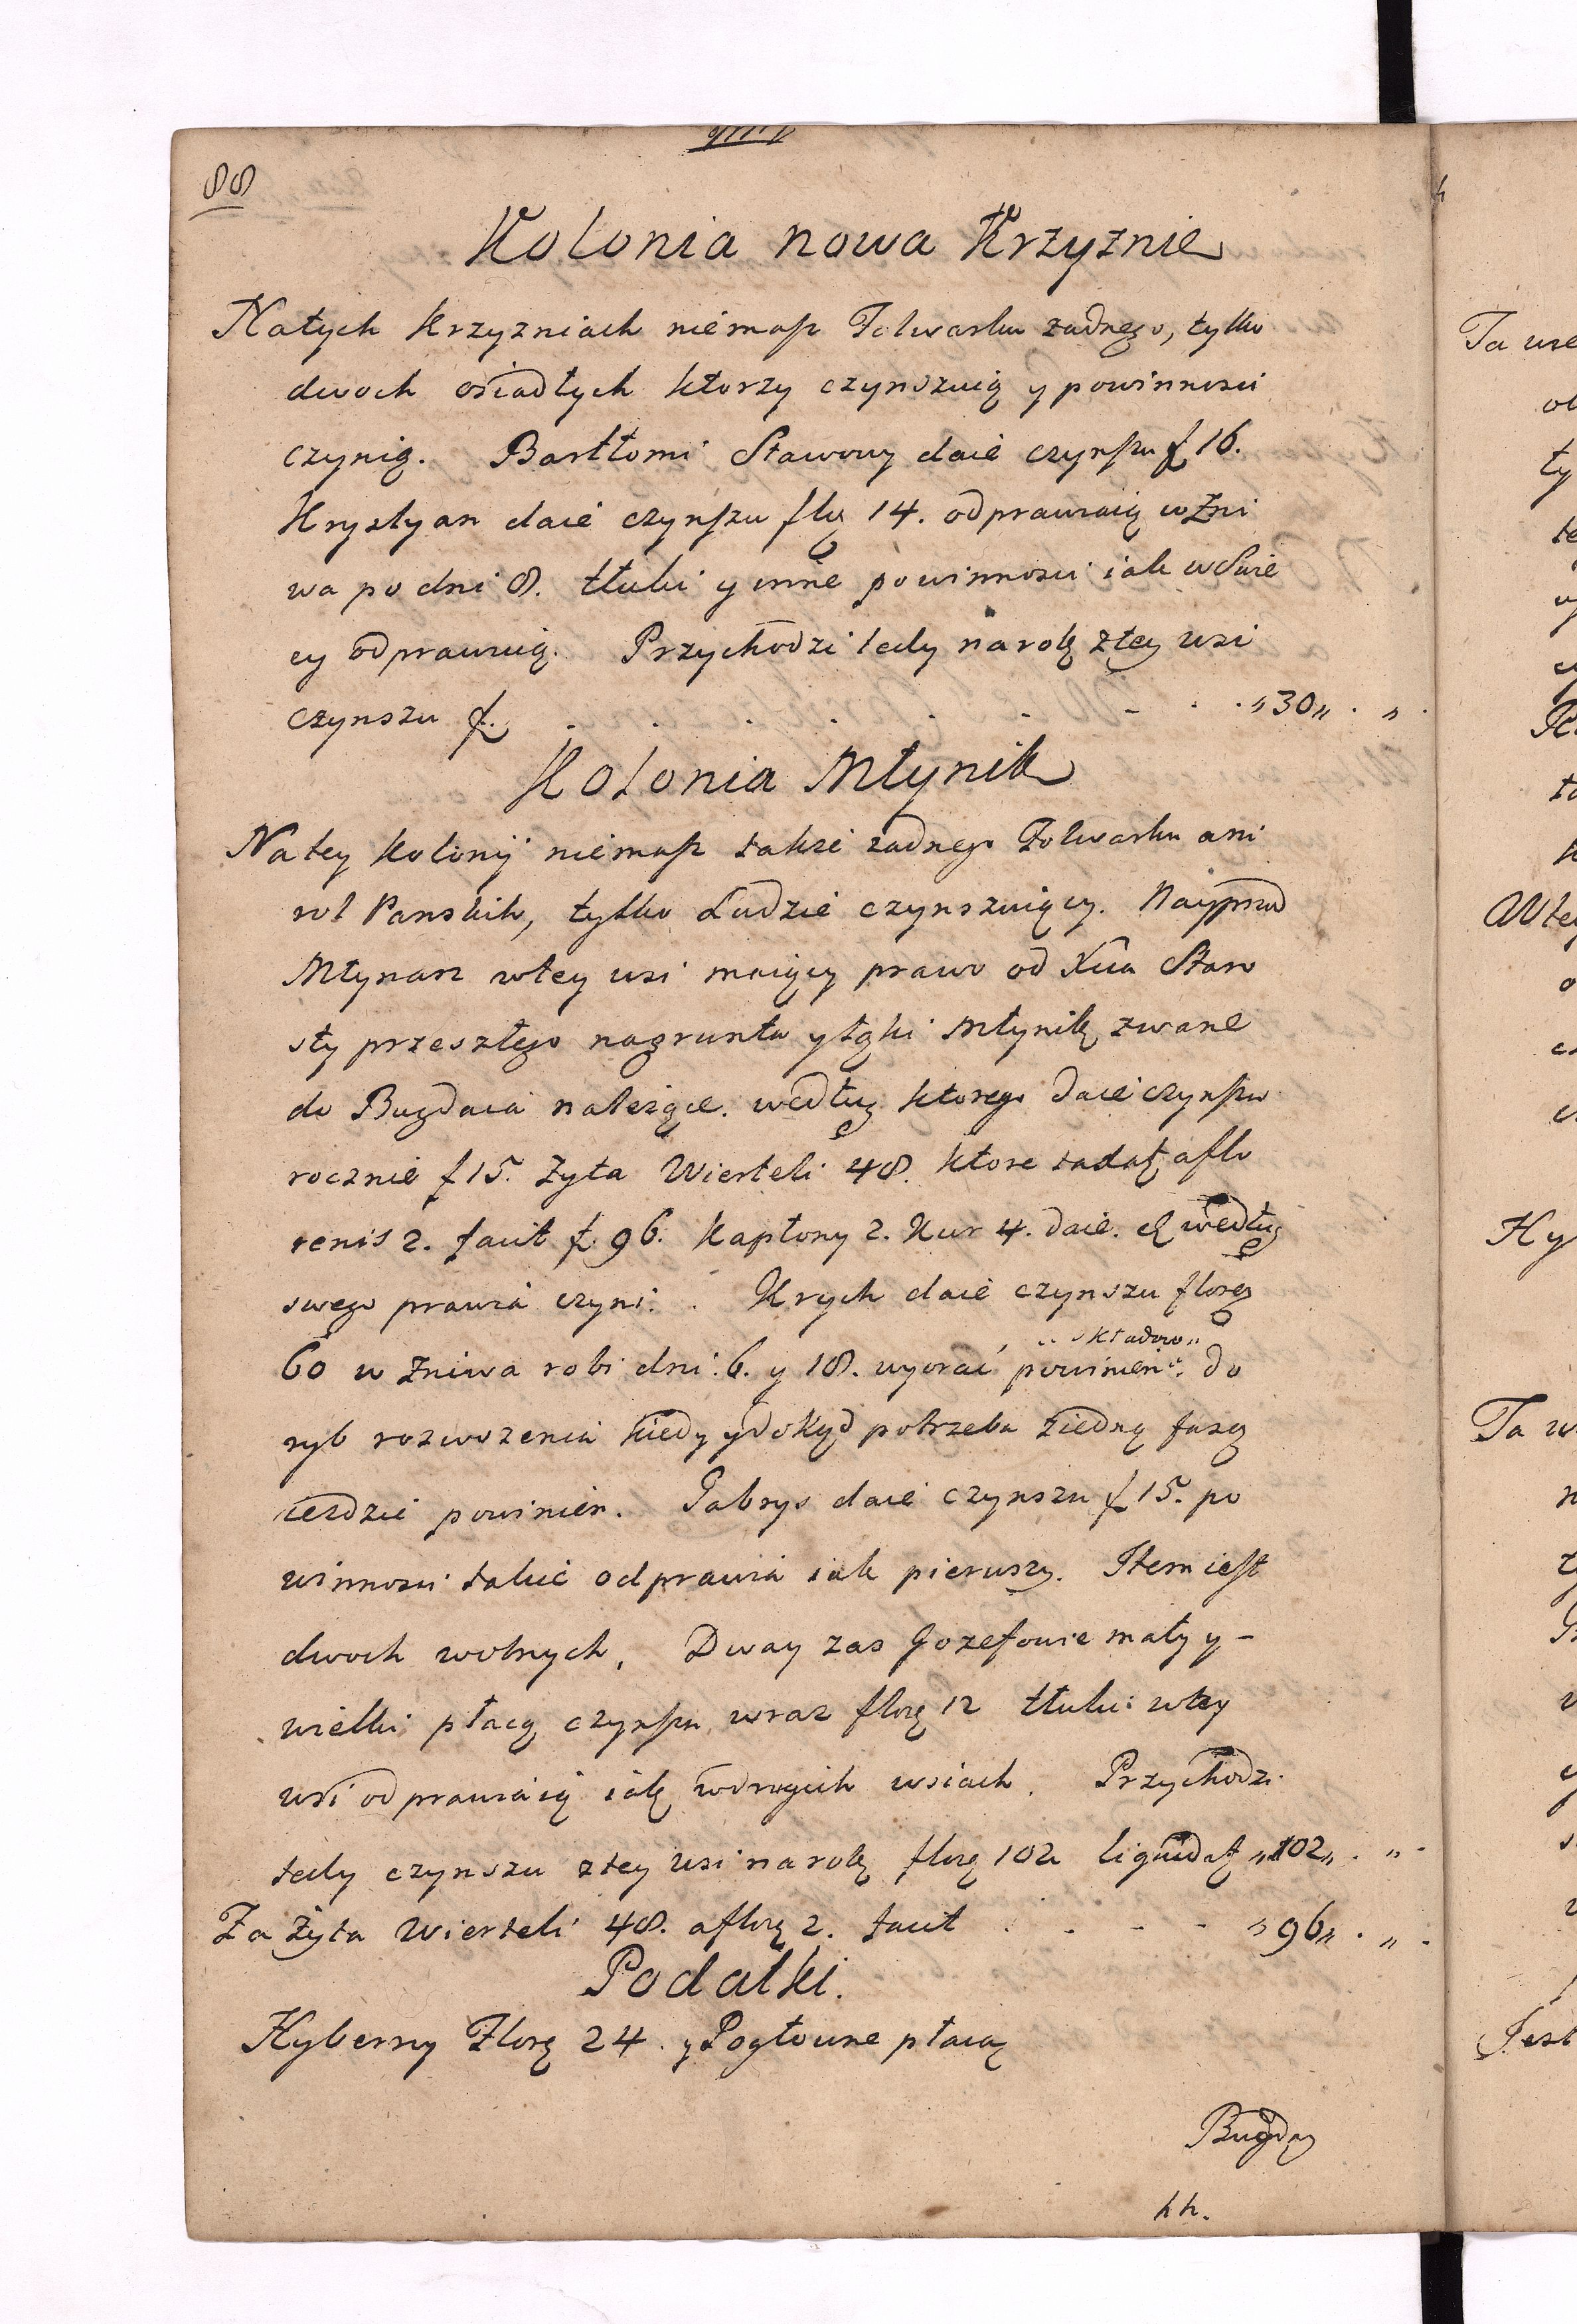 88
Kolonia nowa Krzyznie
Natych Krzyzniach niemasz Folwarku zadnego, tylko
dwoch osiadłych ktorzy czynszuią y powinnosci
czynią. Bartłomi Stawowy daie czynszu f 16.
Krystyan daie czynszu flą 14. odprawuią w żni
wa po dni 8. tłuki y inne powinnosci iak w Swie
cy odprawuią. Przychodzi tedy narok ztey wsi
czynszu f. . . . . . . . . „30„ . „ .
Kolonia Młynik
Natey Kolonij niemasz takze zadnego Folwarku ani
rol Panskich, tylko Ludzie czynszuiący. Nayprzod
Młynarz wtey wsi maiący prawo od Xcia Staro
sty przeszłego nagrunta y łąki Młynik zwane
do Bugdaia należące. według ktorego daie czynszu
rocznie f 15. żyta Wierteli 48. ktore taxat. aflo
renis 2. facit f. 96. Kapłony 2. Kur 4. daie. et według
swego prawa czyni. Krych daie czynszu florę
60 w żniwa robi dni. 6. y 18. wyorać powinien. do
„składow„
ryb rozwozenia kiedy y dokąd potrzeba ziedną fasą
iezdzić powinien. Gabrys daie czynszu f 15. po
winnosci takie odprawia iak pierwszy. Item iest
dwoch wolnych. Dway zas Jozefowie mały y -
wielki płacą czynszu wraz florę 12 tłuki wtey
wsi odprawiaią iak wdrugich wsiach. Przychodzi
tedy czynszu ztey wsi narok florę 102 liquidat „102„ . „ .
Za żyta Wierteli 48. aflorę 2. facit . . - - „96„ . „ .
Podatki.
Hyberny Florę 24. y Pogłowne płacą
Bugday
hh.